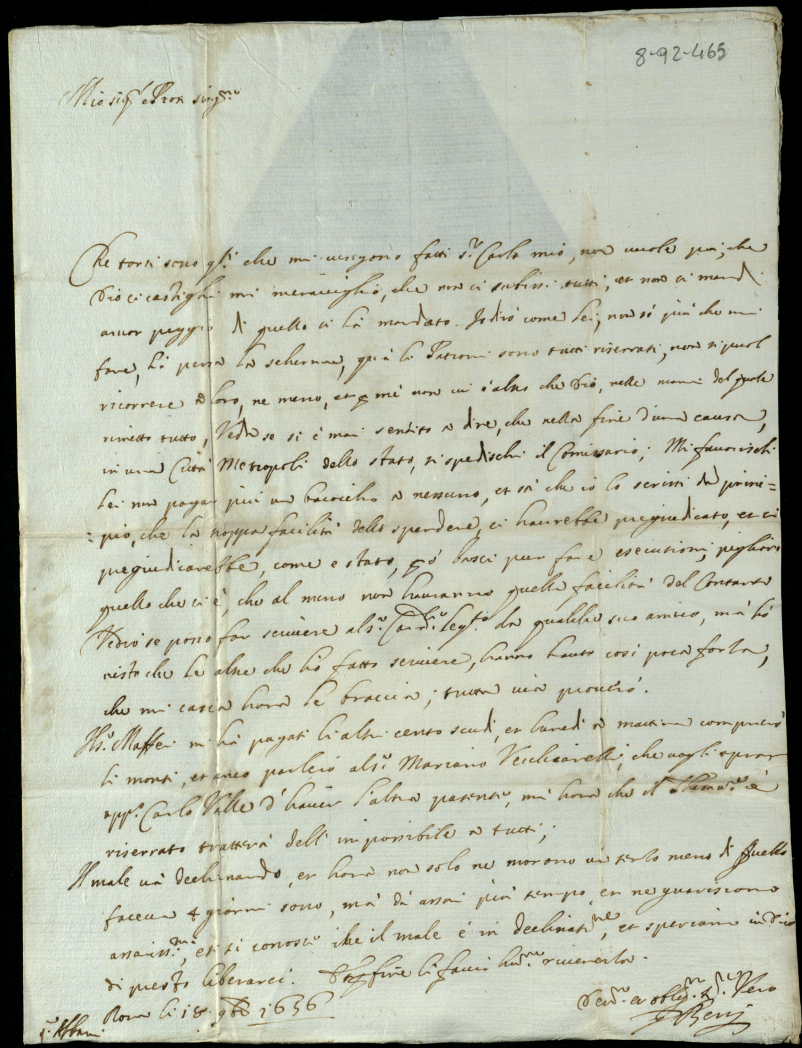 8-92-465
Mio sig.r e Pron sing.mo
Che torti sono q.ti che mi vengono fatti s.r Carlo mio, non vuole poi, che
Dio ci castighi mi meraviglio, che non ci subissi tutti, et non ci mandi
ancor peggio di quello ci hà mandato. Io dirò come lei, non sò più che mi
fare, hò persa la scherma, quà li Padroni sono tutti riserrati, non si puol
ricorrere a loro, ne meno, et p me non vi è altro che Dio, nelle mani del quale
rimetto tutto, Veda se si è mai sentito a dire, che nella fine d'una causa,
in una Città Metropoli dello stato, si spedischi il Comissario; Mi favorischi
lei non pagar più un baiocho a nessuno, et sà che io lo scrissi dà princi=
=pio, che la troppa facilità dello spendere, ci haurebbe pregiudicato, et ci
pregiudicarebbe, come è stato, p.ò lasci pur fare esecutioni, piglino
quello che ci è, che al meno non hauranno quella facilità del Contante
Vedrò se posso far scrivere al s.r Card.le Leg.to da qualche suo amico, mà hò
visto che le altre che hò fatto scrivere, hanno hauto così poca forza,
che mi casca hora le braccia; tutta via provarò.
Il s. Maffei mi hà pagati li altri cento scudi, et lunedì a mattina comprarò
li monti, et anco parlerò al s.r Mariano Vecchiarelli, che vogli oprar
app.o Carlo Valle d'haver l'altra patente, mà hora che il è
riserrato trattarà dell'impossibile a tutti;
Il male và declinando, et hora non solo ne morono un terzo meno di quello
faceva 4 giorni sono, mà dà assai più tempo, et ne guariscono
assaiss.mi, et si conosce che il male è in declinat.ne, et speriamo in Dio
di presto liberarci. Et p fine li faccio hum.ma riverenza.
Roma li 18 9bre 1656
Dev.mo et oblig.mo s.re Vero
Benj